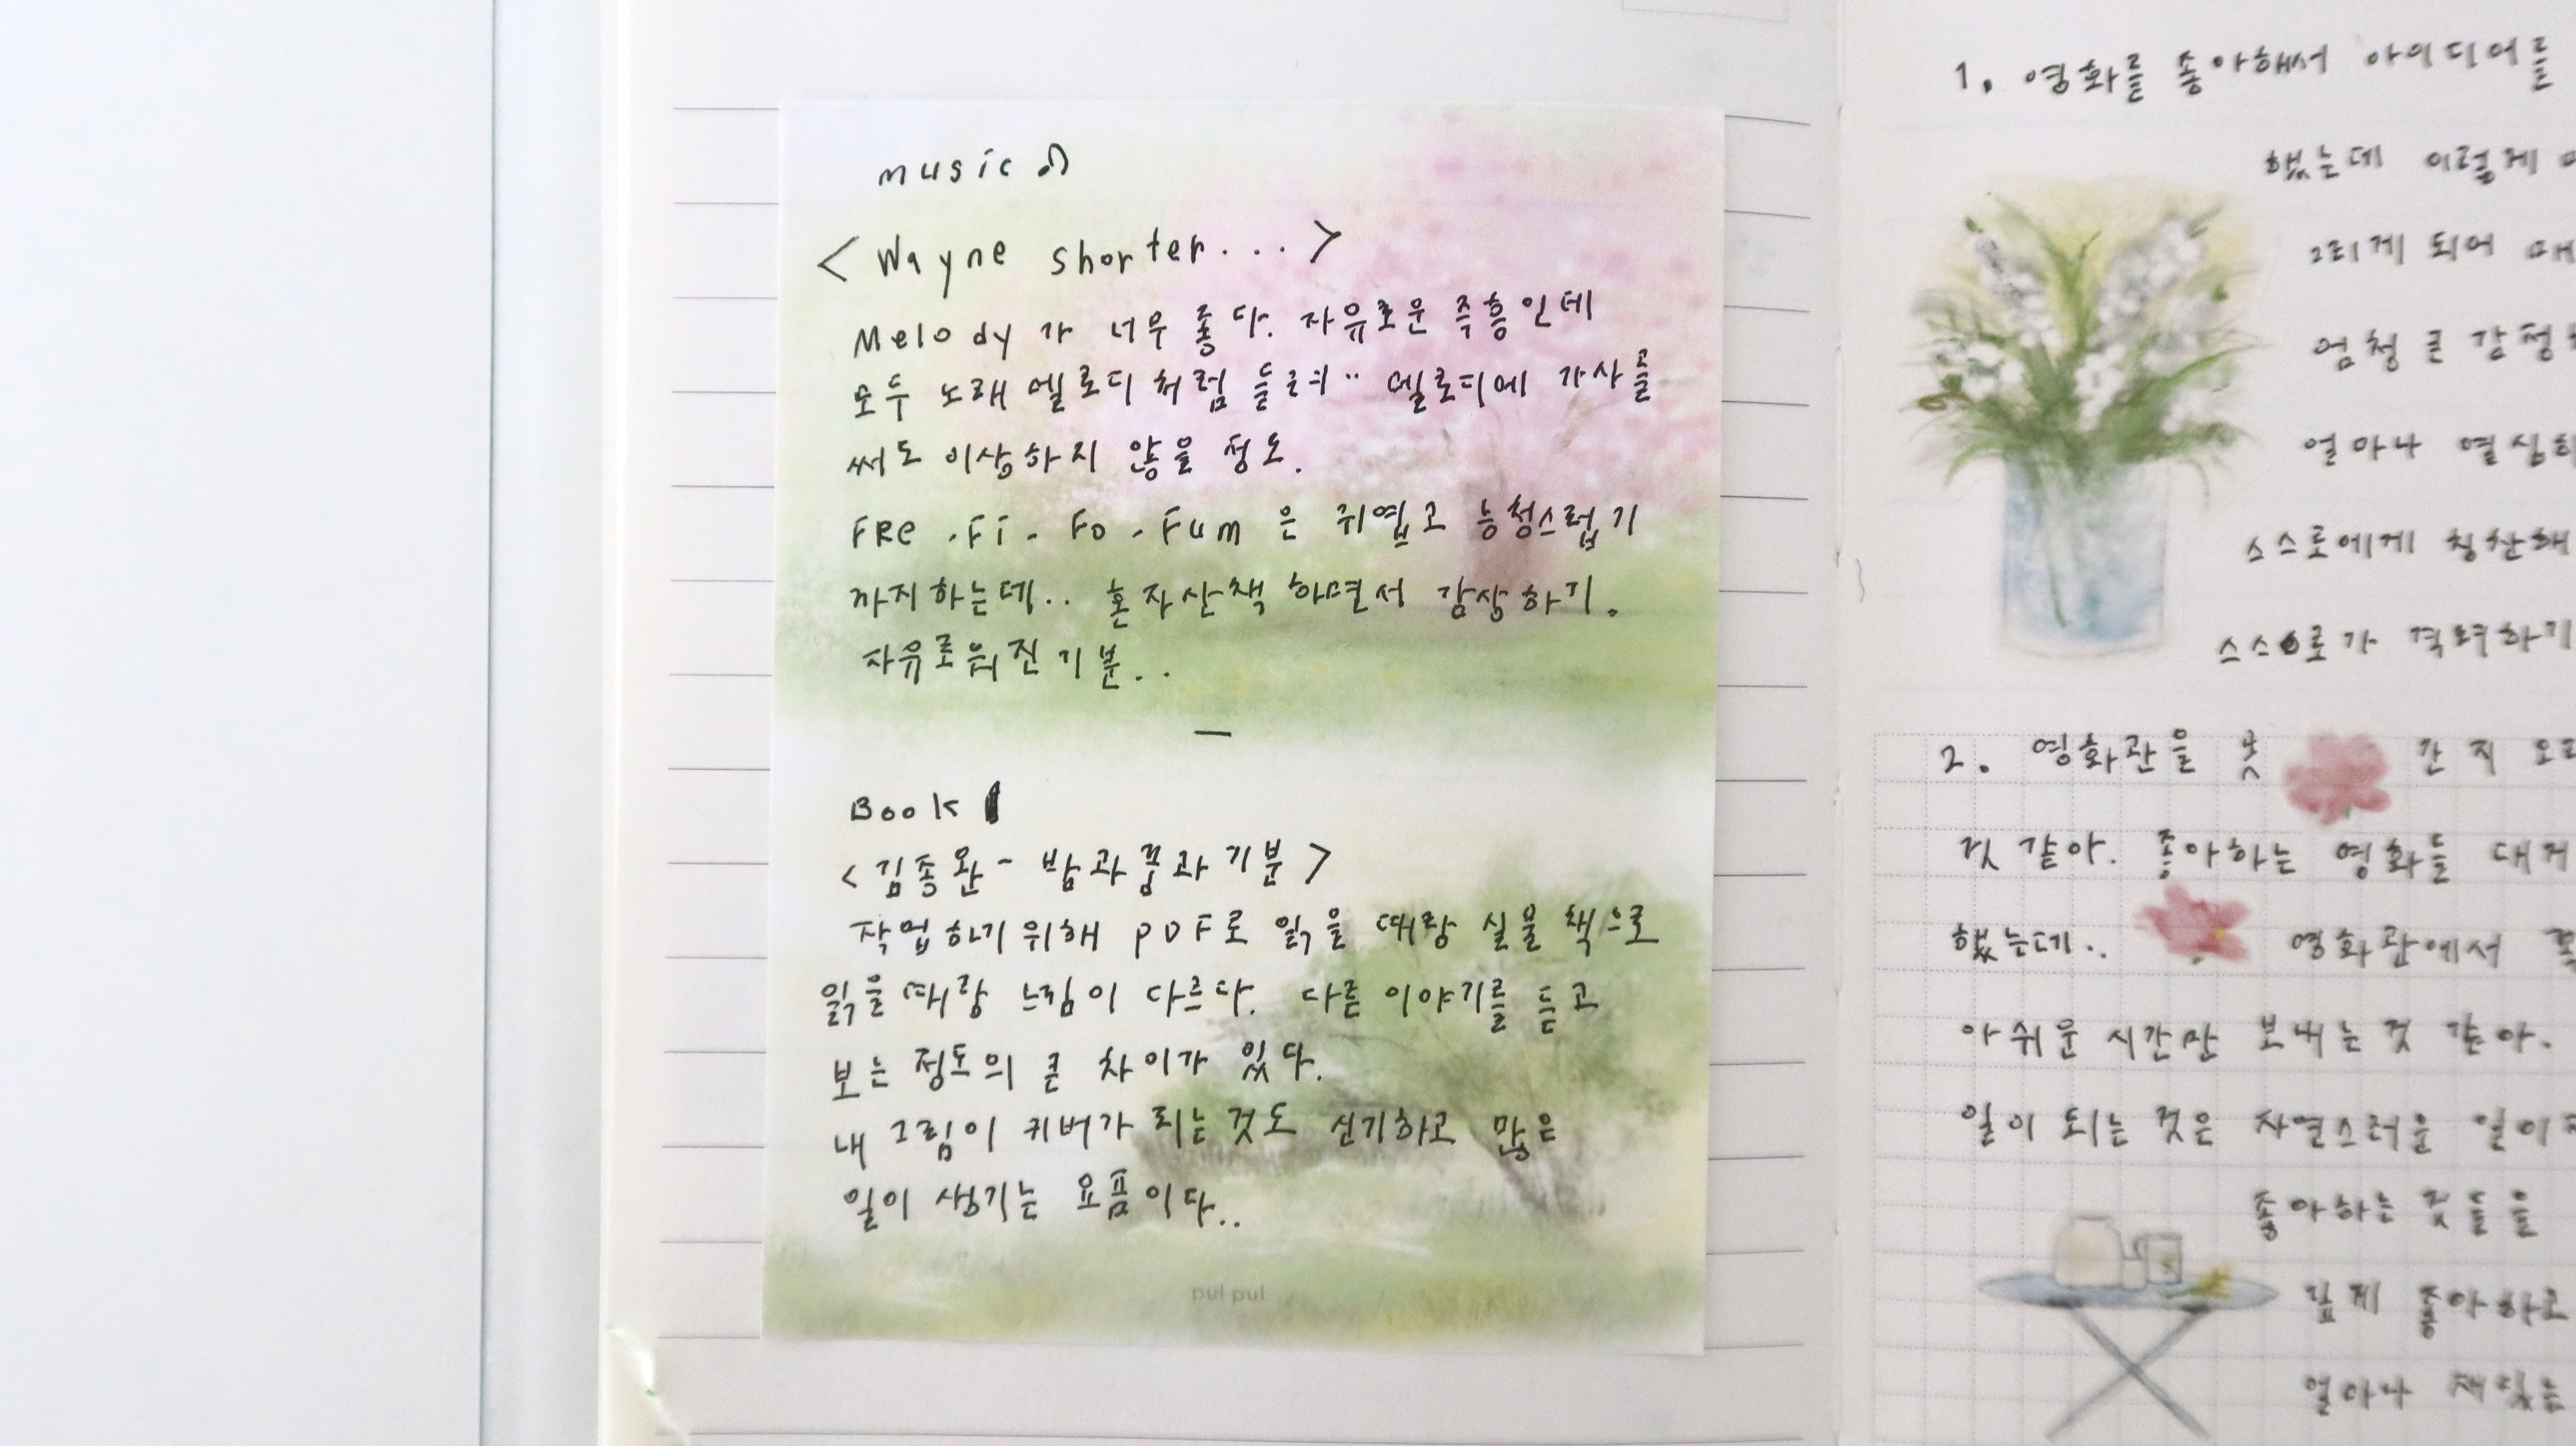 music
< Wayne shorter... >
Melody 가 너무 좋다. 자유로운 즉흥인데
모두 노래 멜로디 처럼 들려.. 멜로디에 가사를
써도 이상하지 않을 정도.
FRe - Fi - Fo - Fum 은 귀엽고 능청스럽기
까지하는데.. 혼자산책 하면서 감상하기.
자유로워진기분..
Book
<김종완 - 밤과꿈과기분>
작업하기위해 PDF로 읽을 때랑 실물 책으로
읽을때랑 느낌이 다르다. 다른 이야기를 듣고
보는 정도의 큰 차이가 있다.
내 그림이 커버가 되는것도 신기하고 많은
일이 생기는 요즘이다..
pul pul
1. 영화를 좋아해서 아이디어를
했는데 이렇게
그리게 되어
엄청 큰 감정
얼마나 열심히
스스로에게 칭찬해
스스로가 격려하기
2. 영화관을 못 간지
것 같아. 좋아하는 영화들
했는데.. 영화관에서
아쉬운 시간만 보내는것 같아.
일이 되는 것은 자연스러운 일이
좋아하는 것들을
깊게 좋아하고
얼마나 재밌는